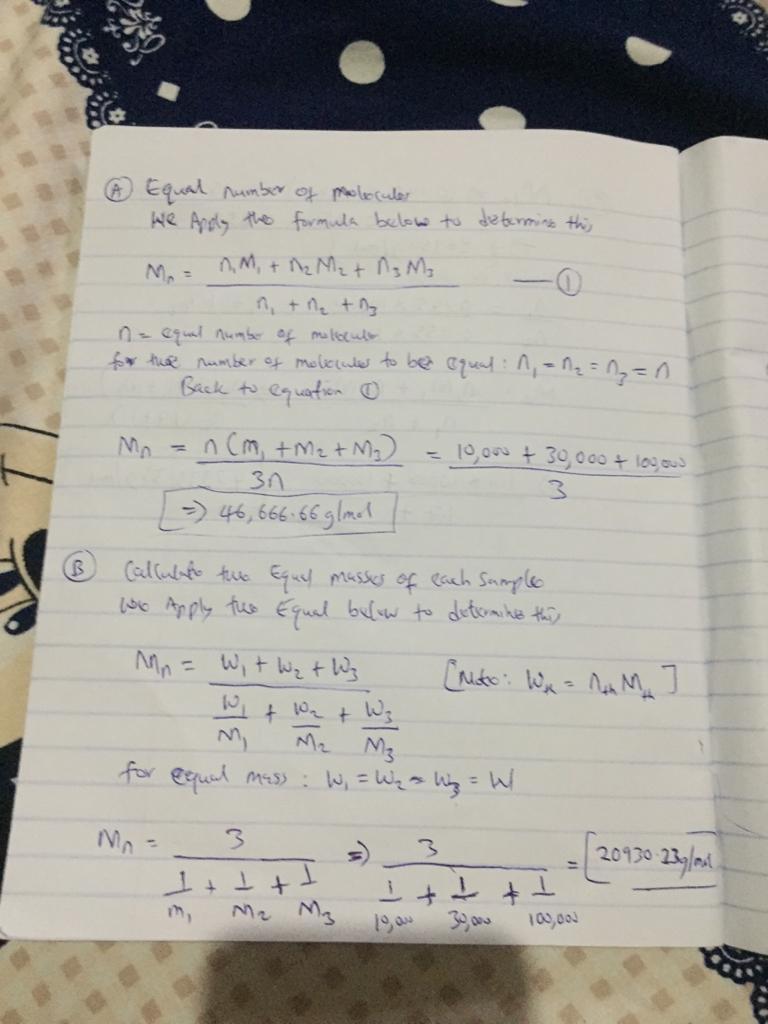 Ⓐ Equal number of molecules
We Apply the formula below to determine this
Mn = n₁M₁ + n₂M₂ + n₃M₃ / n₁ + n₂ + n₃ — ①
n = equal number of molecules
for the number of molecules to be equal : n₁ = n₂ = n₃ = n
Back to equation ①
Mn = n(M₁ + M₂ + M₃) / 3n = 10,000 + 30,000 + 100,000 / 3
⇒ 46,666.66 g/mol
Ⓑ Calculate the Equal masses of each sample
We Apply the Equal below to determine this
Mn = W₁ + W₂ + W₃ / W₁/M₁ + W₂/M₂ + W₃/M₃ [Note: = ]
for equal mass : W₁ = W₂ = W₃ = W
Mn = 3 / 1/M₁ + 1/M₂ + 1/M₃ ⇒ 3 / 1/10,000 + 1/30,000 + 1/100,000 = 20930.23g/mol